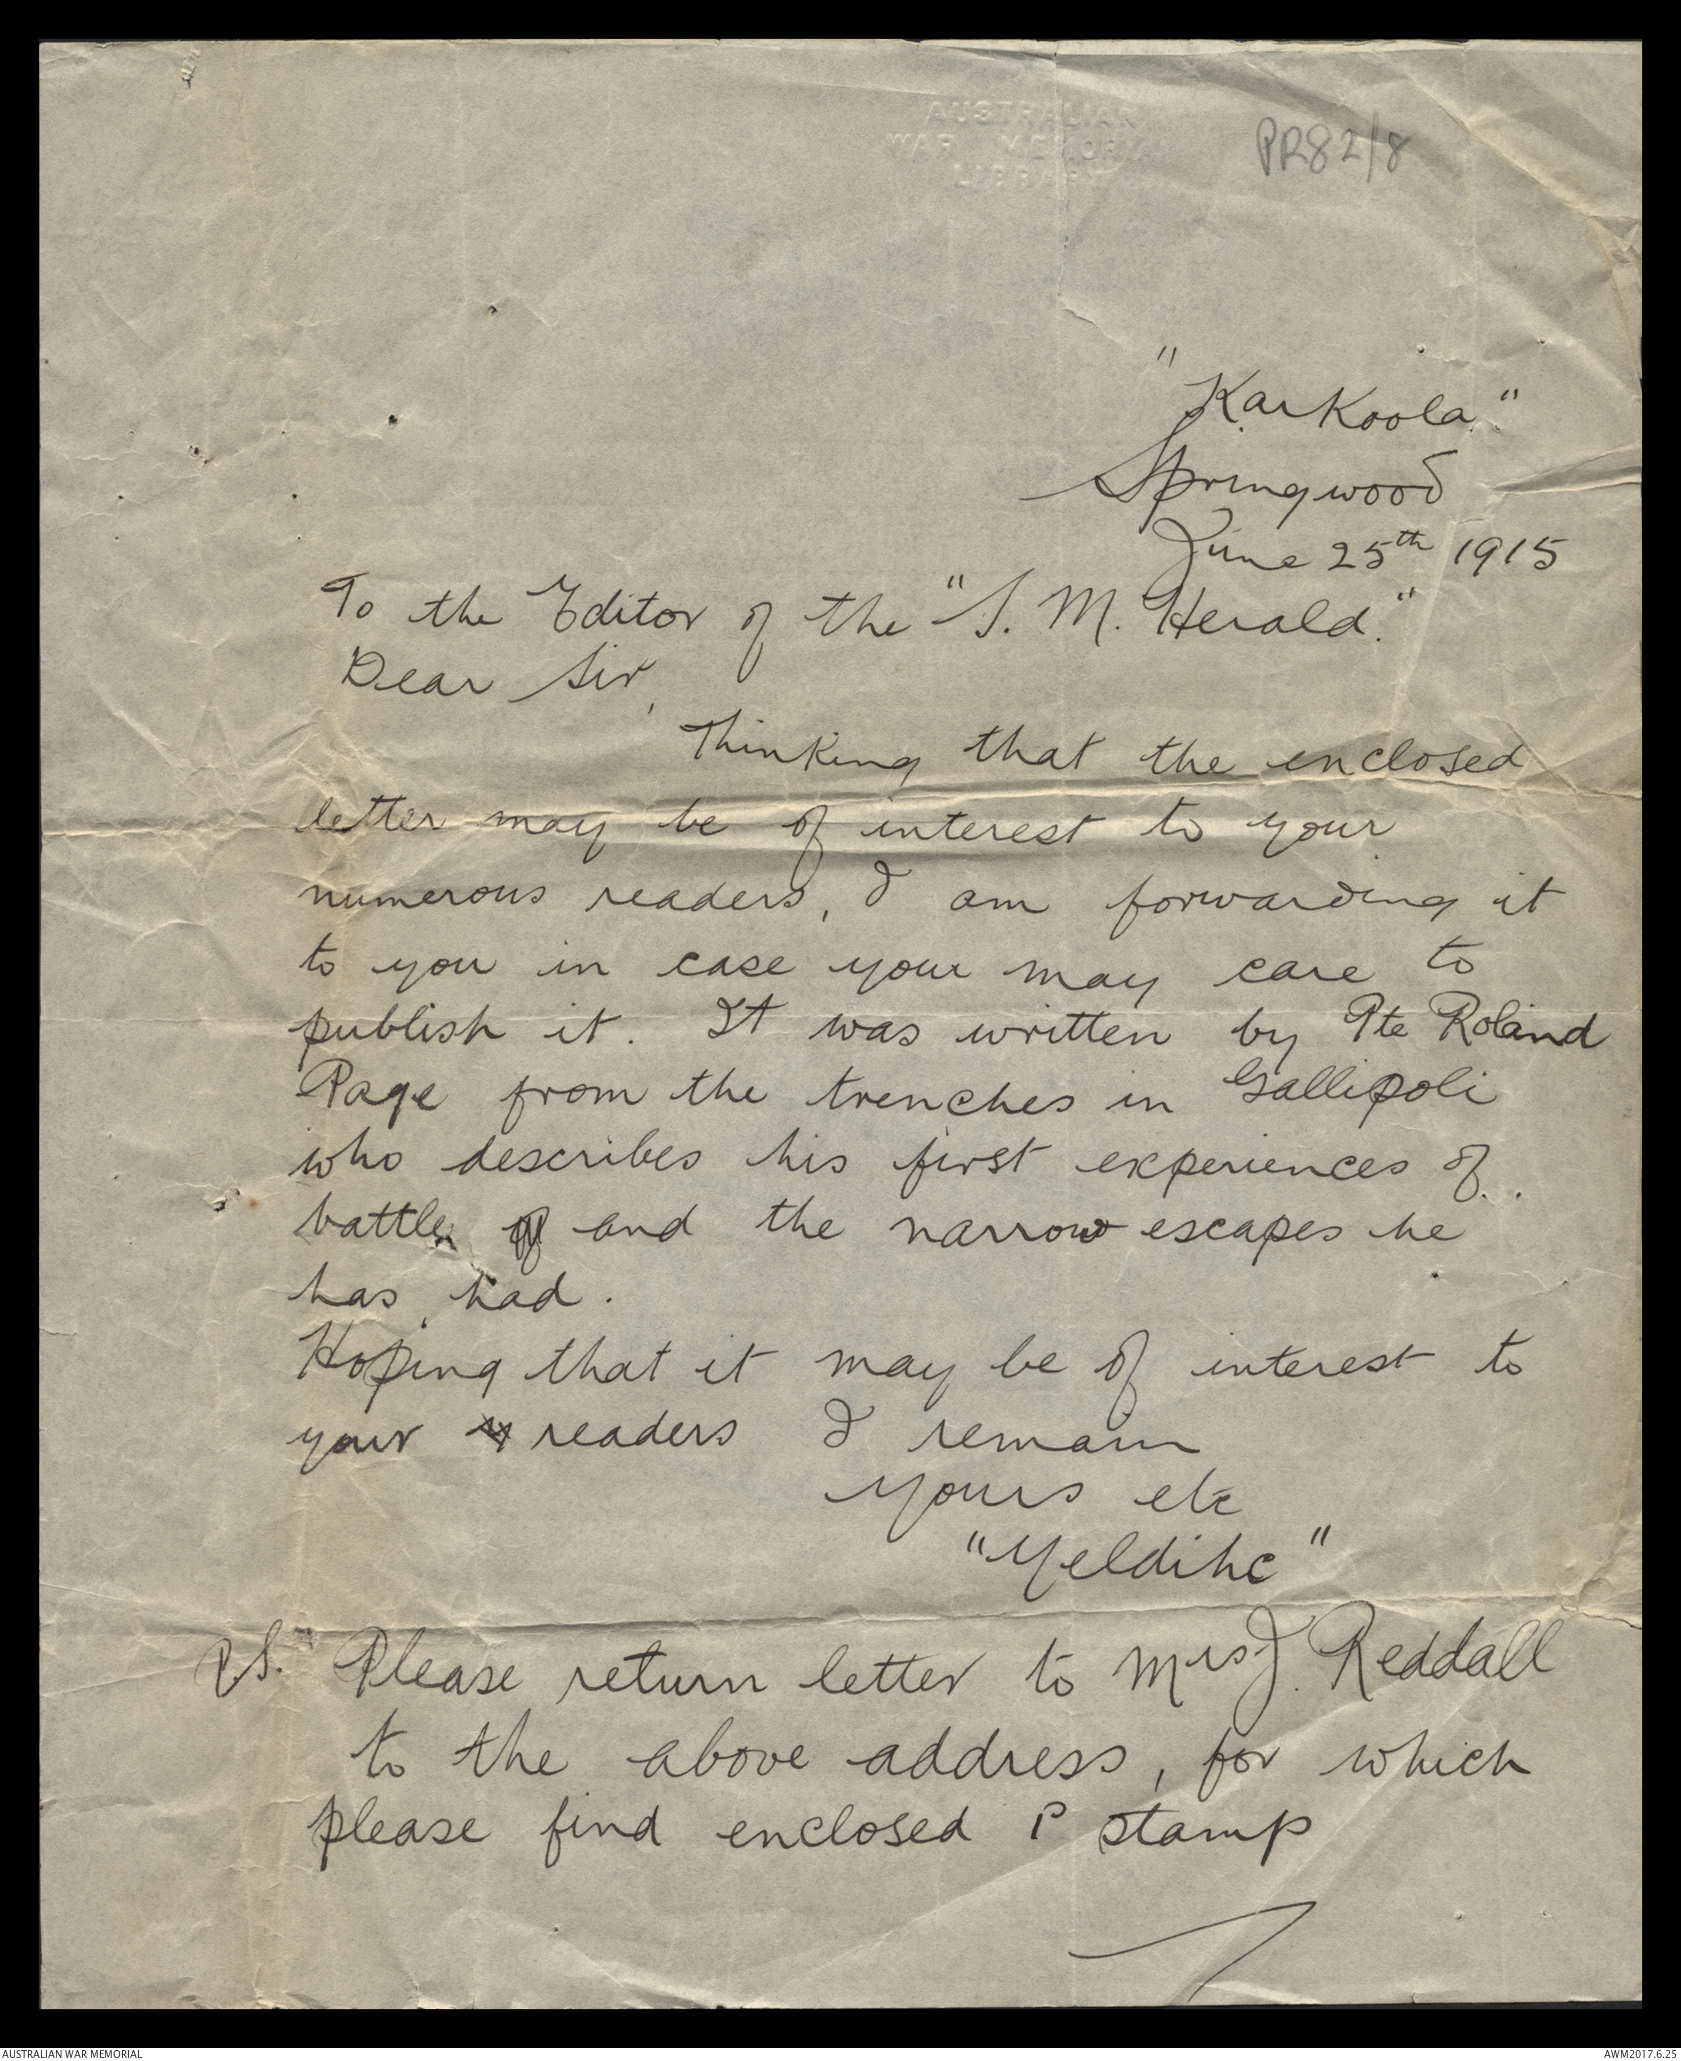 AUSTRALIAN
WAR MEMORIAL
LIBRARY
PR82/8
"Karkoola."
Springwood
June 25th 1915
To the Editor of the "S. M. Herald."
Dear Sir,
Thinking that the enclosed
letter may be of interest to your
numerous readers, I am forwarding it
to you in case your may care to
publish it. It was written by Pte Roland
Page from the trenches in Gallipoli
who describes his first experiences of
battle and the narrow escapes he
has had.
Hoping that it may be of interest to
your readers I remain
Yours etc
"Yeldihc"
P.S. Please return letter to Mrs J. Reddall
to the above address, for which
please find enclosed 1d stamp
AUSTRALIAN WAR MEMORIAL
AWM2017.6.25